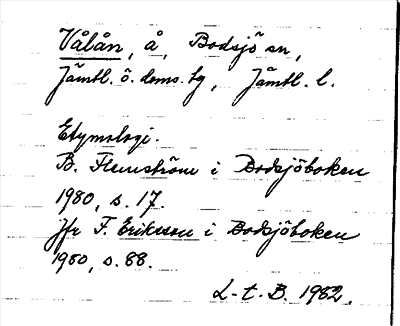 Vålån, å, Bodsjö sn,
Jämtl. ö. doms. tg, Jämtl. l.
Etymologi.
B. Flemström i Bodsjöboken
1980, s. 17.
jfr F. Eriksson i Bodsjöboken
1980, s. 88.
L-t. B. 1982.